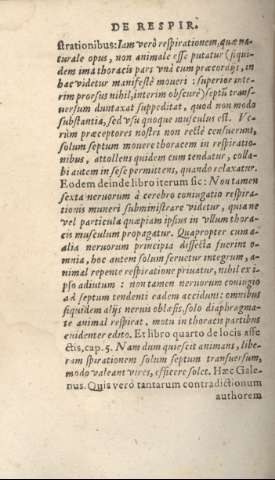 DE RESPIR.
strationibus: Iam verò respirationem, quæ na-
turale opus, non animale esse putatur (siqui-
dem ima thoracis pars vnà cum præcordijs, in
hac videtur manifestè moueri : superior inte-
rim prorsus nihil, interim obscurè) septū trans-
uersum duntaxat suppeditat, quod non modo
substantia, sed vsu quoque musculus est. Ve-
rùm præceptores nostri non rectè censuerunt,
solum septum mouere thoracem in respiratio-
nibus, attollens quidem cum tendatur, colla-
bi autem in sese permittens, quando relaxatur.
Eodem deinde libro iterum sic: Non tamen
sexta neruorum à cerebro coniugatio respira-
tionis muneri subministrare videtur, quia ne
vel particula quæpiam ipsius in vllum thora-
cis musculum propagatur. Quapropter cum a-
alia neruorum principia dissecta fuerint o-
mnia, hoc autem solum seruetur integrum, a-
nimal repente respiratione priuatur, nihil ex i-
pso adiutum : non tamen neruorum coniugio
ad septum tendenti eadem accidunt: omnibus
siquidem alijs neruis oblæsis, solo diaphragma-
te animal respirat, motu in thoracis partibus
euidenter edito. Et libro quarto de locis affe-
ctis, cap. 5. Nam dum quiescit animans, libe-
ram spirationem solum septum transuersum,
modo valeant vires, efficere solet. Hæc Gale-
nus. Quis verò tantarum contradictionum
authorem